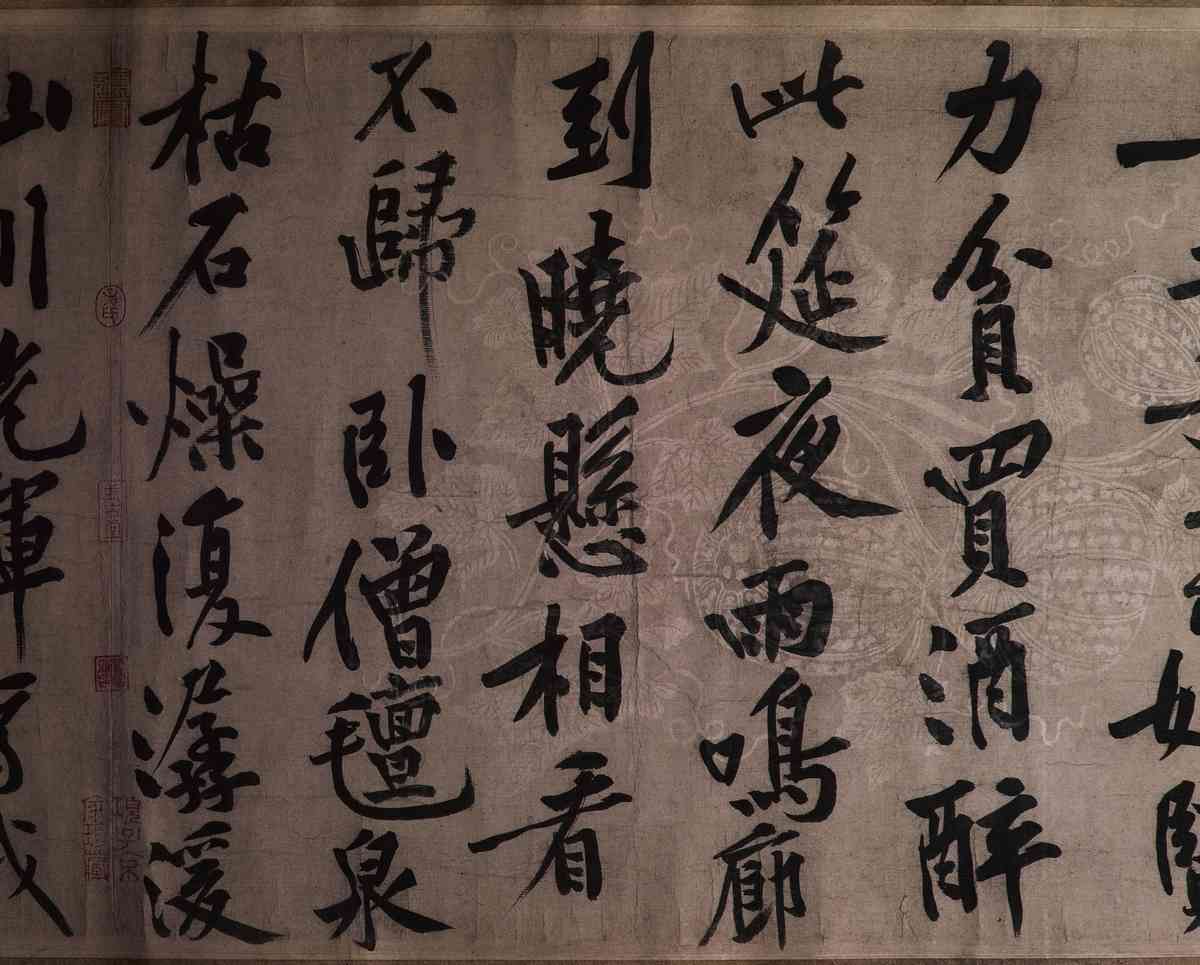 力貧買酒醉
此筵夜雨鳴廊
到曉懸相看
不歸臥僧氈泉
枯石燥復潺湲
山川光輝為我